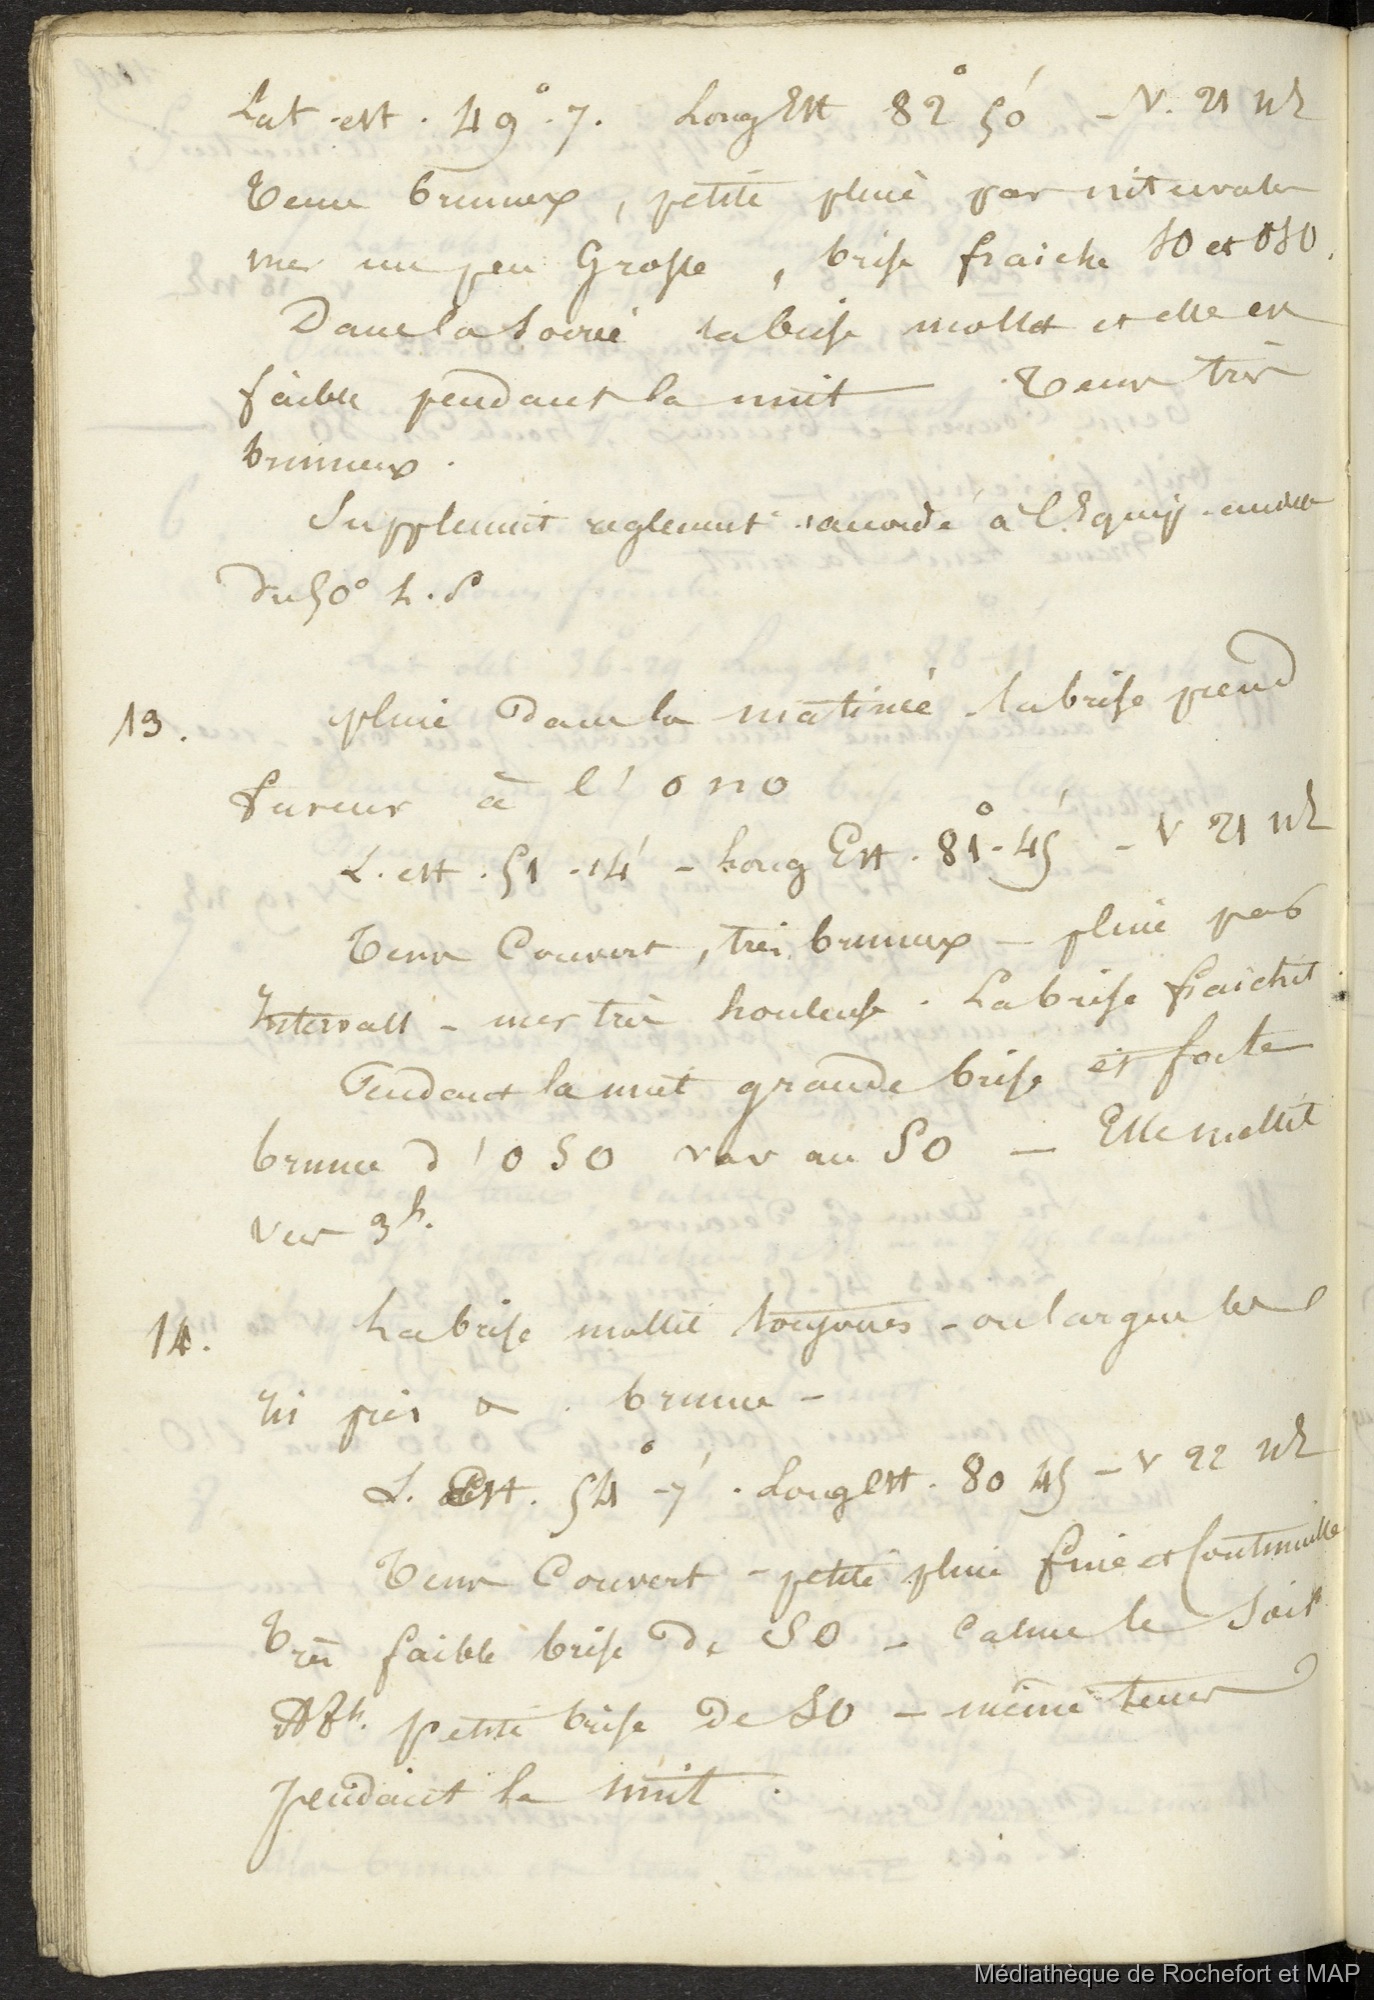 Lat. est. 49°.7. Long Est 82° 50' - V. 21 nds
Tems brumeux, petite pluie par intervales
mer un peu Grosse, brise fraiche SO et OSO.
Dans la Soirée la brise mollit et elle est
faible pendant la nuit Tems très
brumeux.
Supplement reglement. accordé à l'Equip.
du 50° L. S
13. pluie dans la matinée la brise prend
faveur à l'ONO
L. est. 51.14' - Long Est. 81°.45' - V 21 nds
Tems Couvert, très brumeux - pluie par
Intervall - mer très houleuse. La brise fraichit
Pendant la nuit grande brise et forte
brume d'OSO var au SO - Elle mollit
vers 3h.
14. La brise mollit toujours - on largue les
ris pris brume -
L. Est. 54°-7'. Long Est. 80 45 - V 22 nds
Tems Couvert - petite pluie fine et Continuelle
Très faible brise de SO - Calme le Soir
A 8h. petite brise de SO - même tems
pendant la nuit.
Médiathèque de Rochefort et MAP